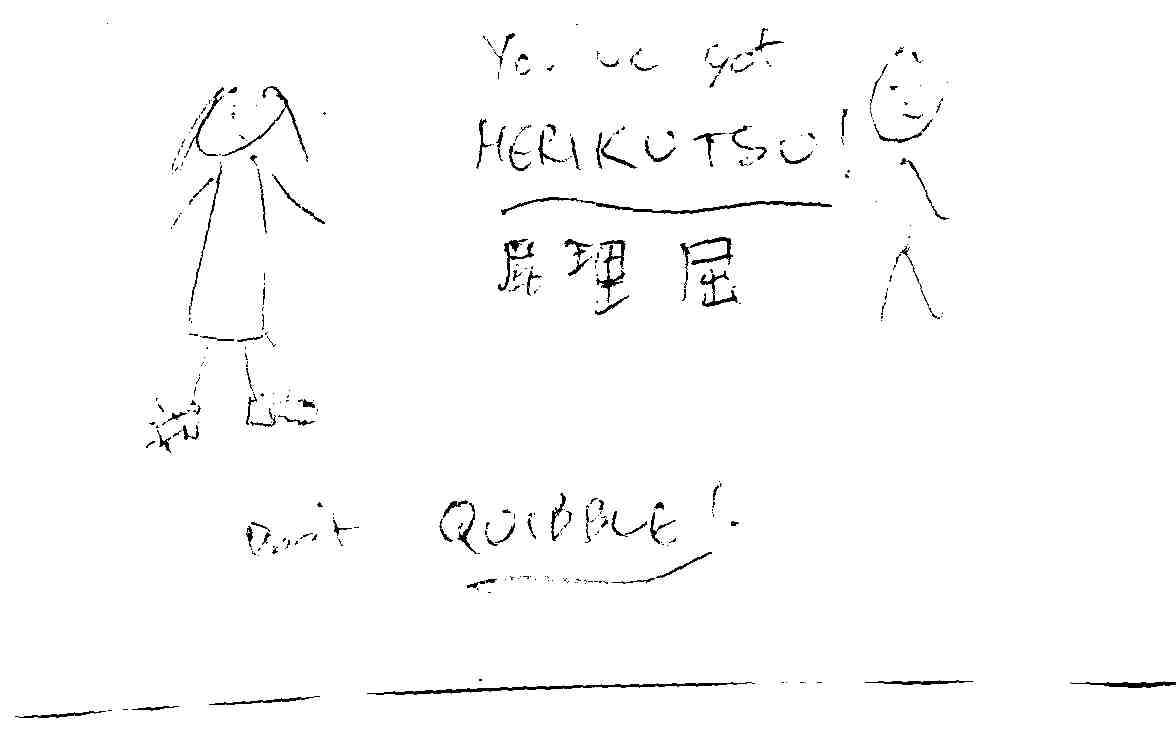 You've got
HERIKUTSU!
屁理屈
Don't QUIBBLE!